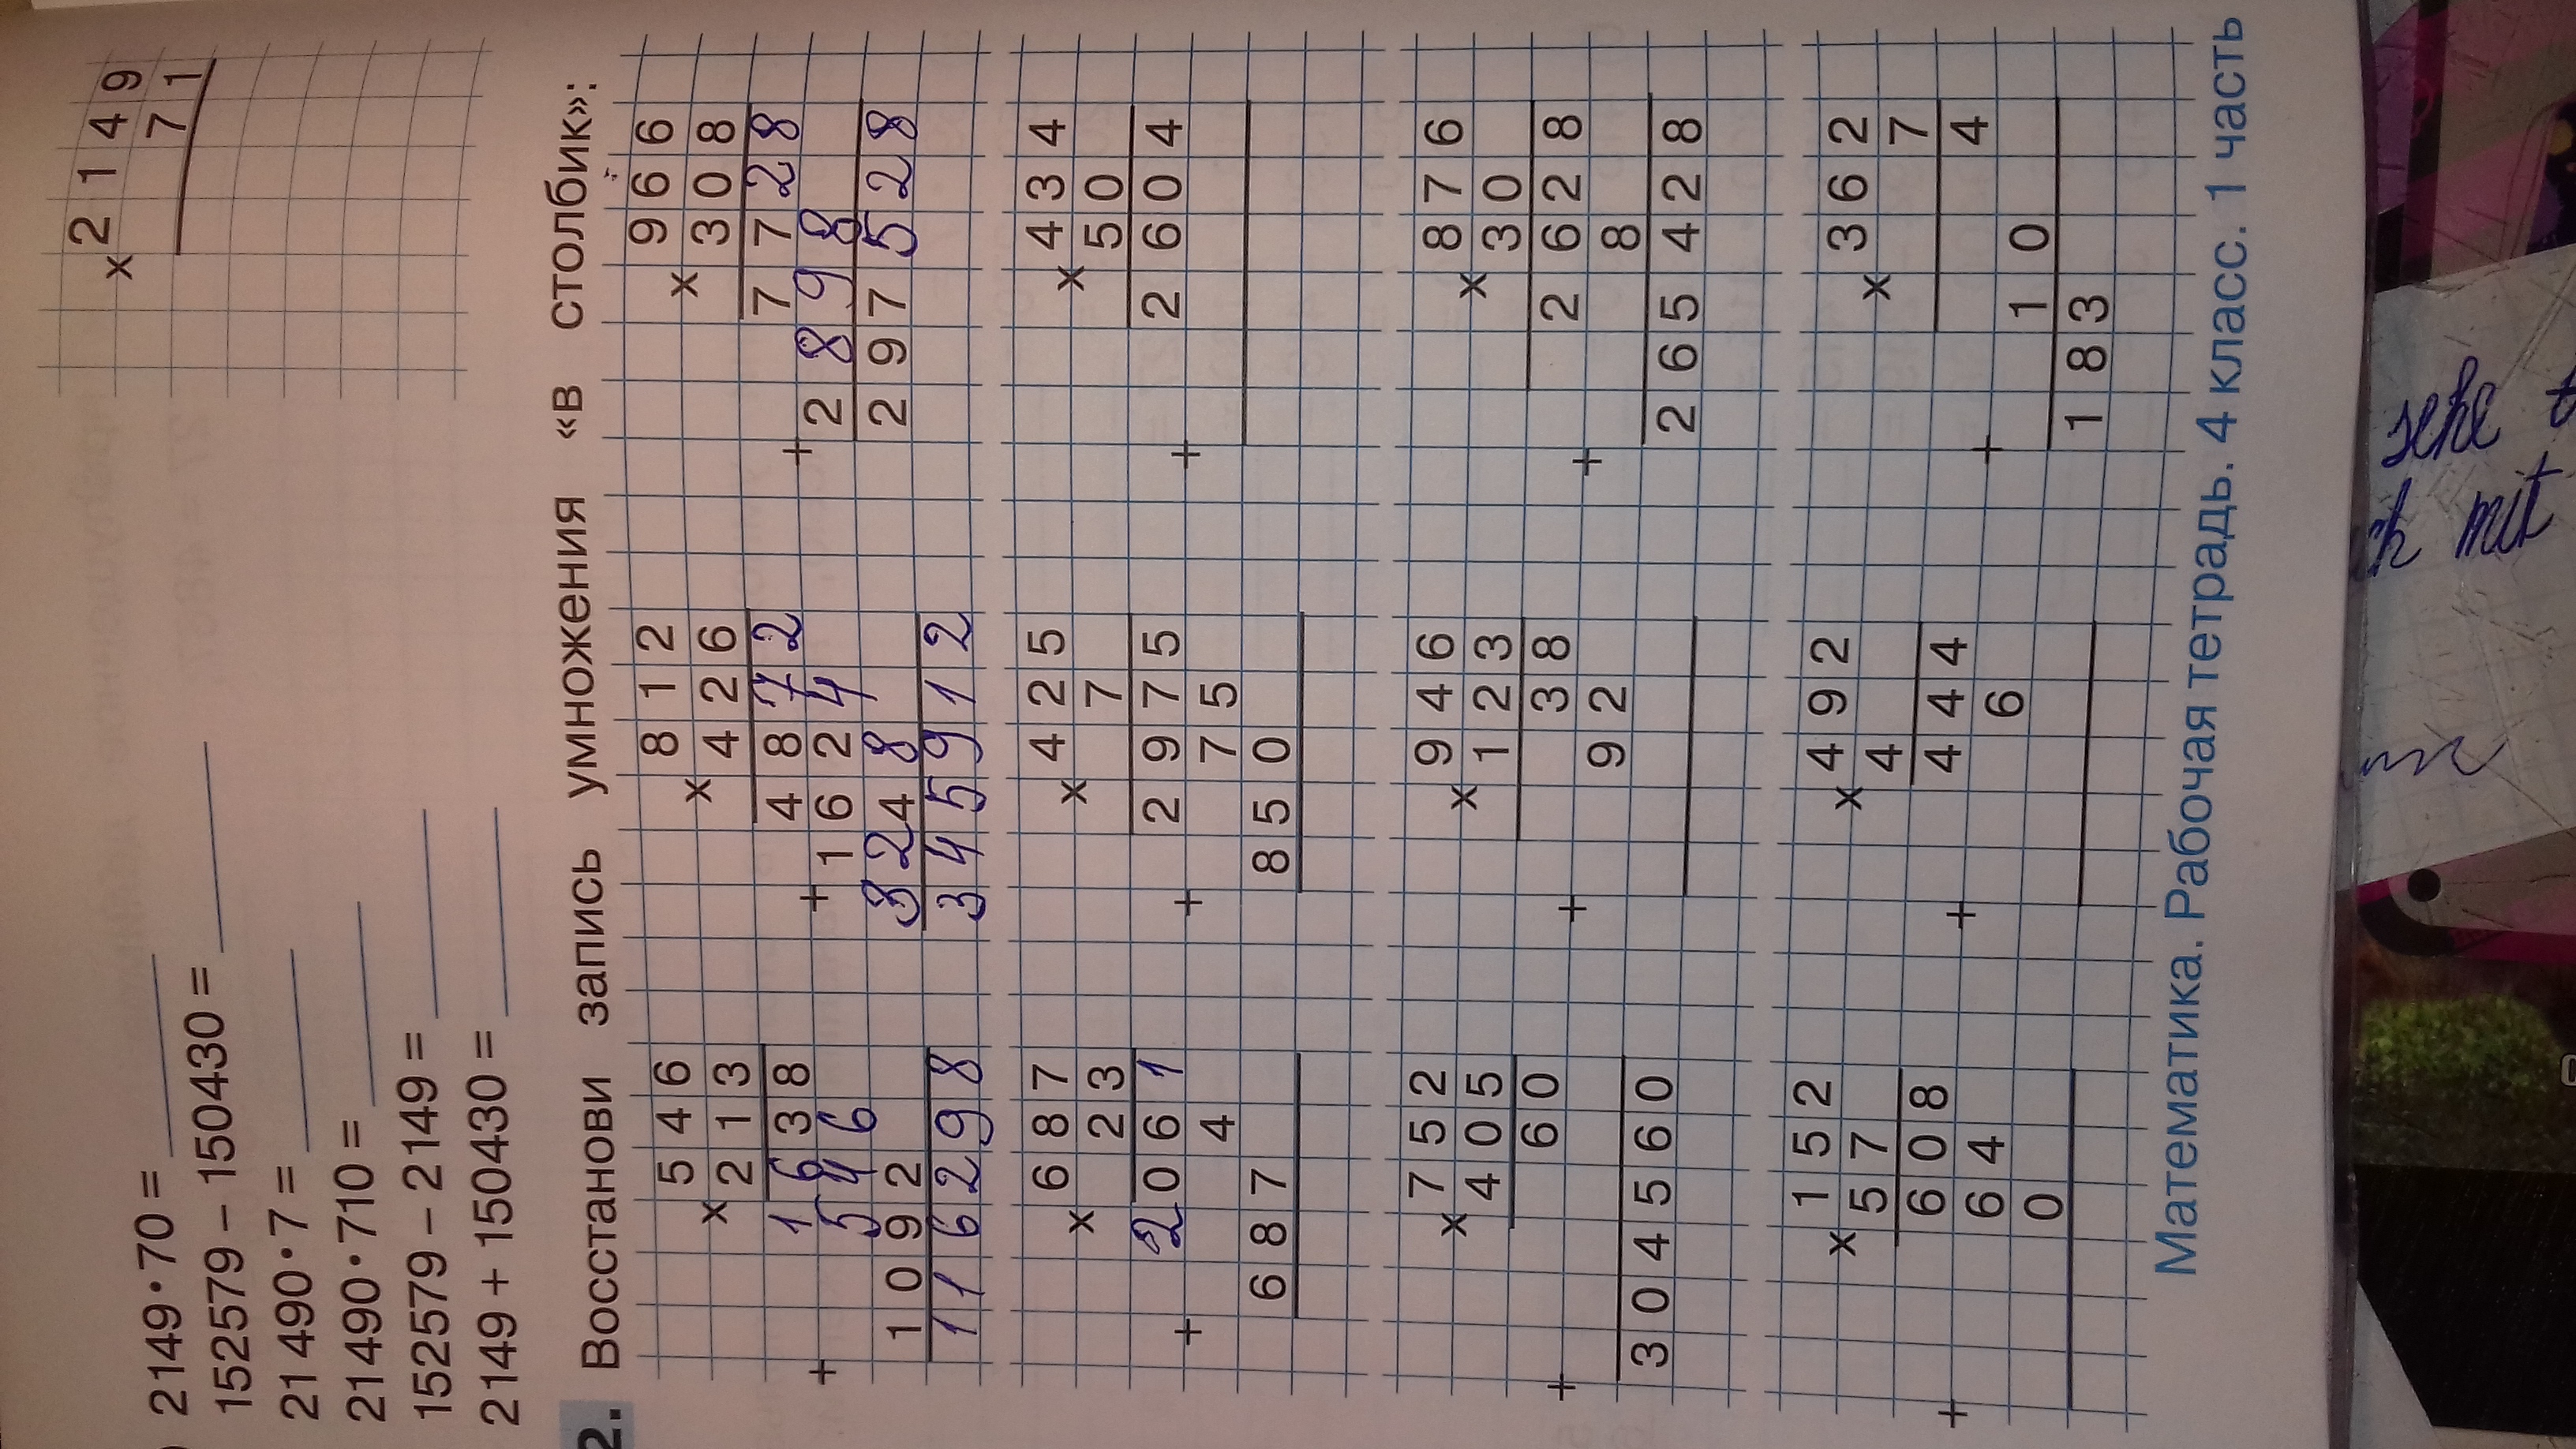 × 2 1 4 9
7 1
2149 • 70 =
152579 – 150430 =
21490 • 7 =
21490 • 710 =
152579 – 2149 =
2149 + 150430 =
2. Восстанови запись умножения «в столбик»:
5 4 6
× 2 1 3
1 6 3 8
+ 5 4 6
1 0 9 2
1 1 6 2 9 8
8 1 2
× 4 2 6
4 8 7 2
+ 1 6 2 4
3 2 4 8
3 4 5 9 1 2
9 6 6
× 3 0 8
7 7 2 8
+ 2 8 9 8
2 9 7 5 2 8
6 8 7
× 2 3
2 0 6 1
+ 4
6 8 7
4 2 5
× 7
2 9 7 5
+ 7 5
8 5 0
4 3 4
× 5 0
2 6 0 4
+
7 5 2
× 4 0 5
6 0
+
3 0 4 5 6 0
9 4 6
× 1 2 3
3 8
+ 9 2
8 7 6
× 3 0
2 6 2 8
+ 8
2 6 5 4 2 8
1 5 2
× 5 7
6 0 8
+ 6 4
0
4 9 2
× 4
4 4 4
+ 6
3 6 2
× 7
4
+ 1 0
1 8 3
Математика. Рабочая тетрадь. 4 класс. 1 часть
sehe
mit